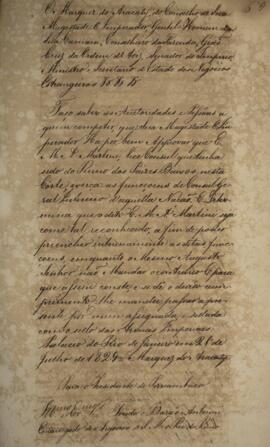 O Marquez de Aracaty do Conselho de Sua
Magestade O Imperador, Gentil Homem da
Sua Camara, Conselheiro da Fazenda, Gram
Cruz da Ordem de Aviz, Senador do Imperio,
Ministro e Secretario de Estado dos Negocios
Estrangeiros
Faço saber as Autoridades e Pessoas a
quem competir, que Sua Magestade O Im-
perador Ha por bem Approvar que C.
A. A. Martene, Vice Consul que tinha
sido do Reino dos Paizes Baixos nesta
Corte, exerça as funcçoens de Consul Ge-
ral interino daquella Nação. E deter-
mina que o dito C. A. A. Martene se-
ja como tal reconhecido, a fim de poder
preencher interinamente as ditas func-
coens, emquanto o Mesmo Augusto
Senhor não Mandar o contrario. E para
que assim conste, e se dê o devido cum-
primento, lhe mandei passar a pre-
sente por mim assignada, e sellada
com o sello das Armas Imperiaes.
Palacio do Rio de Janeiro em 26 de
Julho de 1829 = Marquez de Aracaty
Para o Presidente de Pernambuco